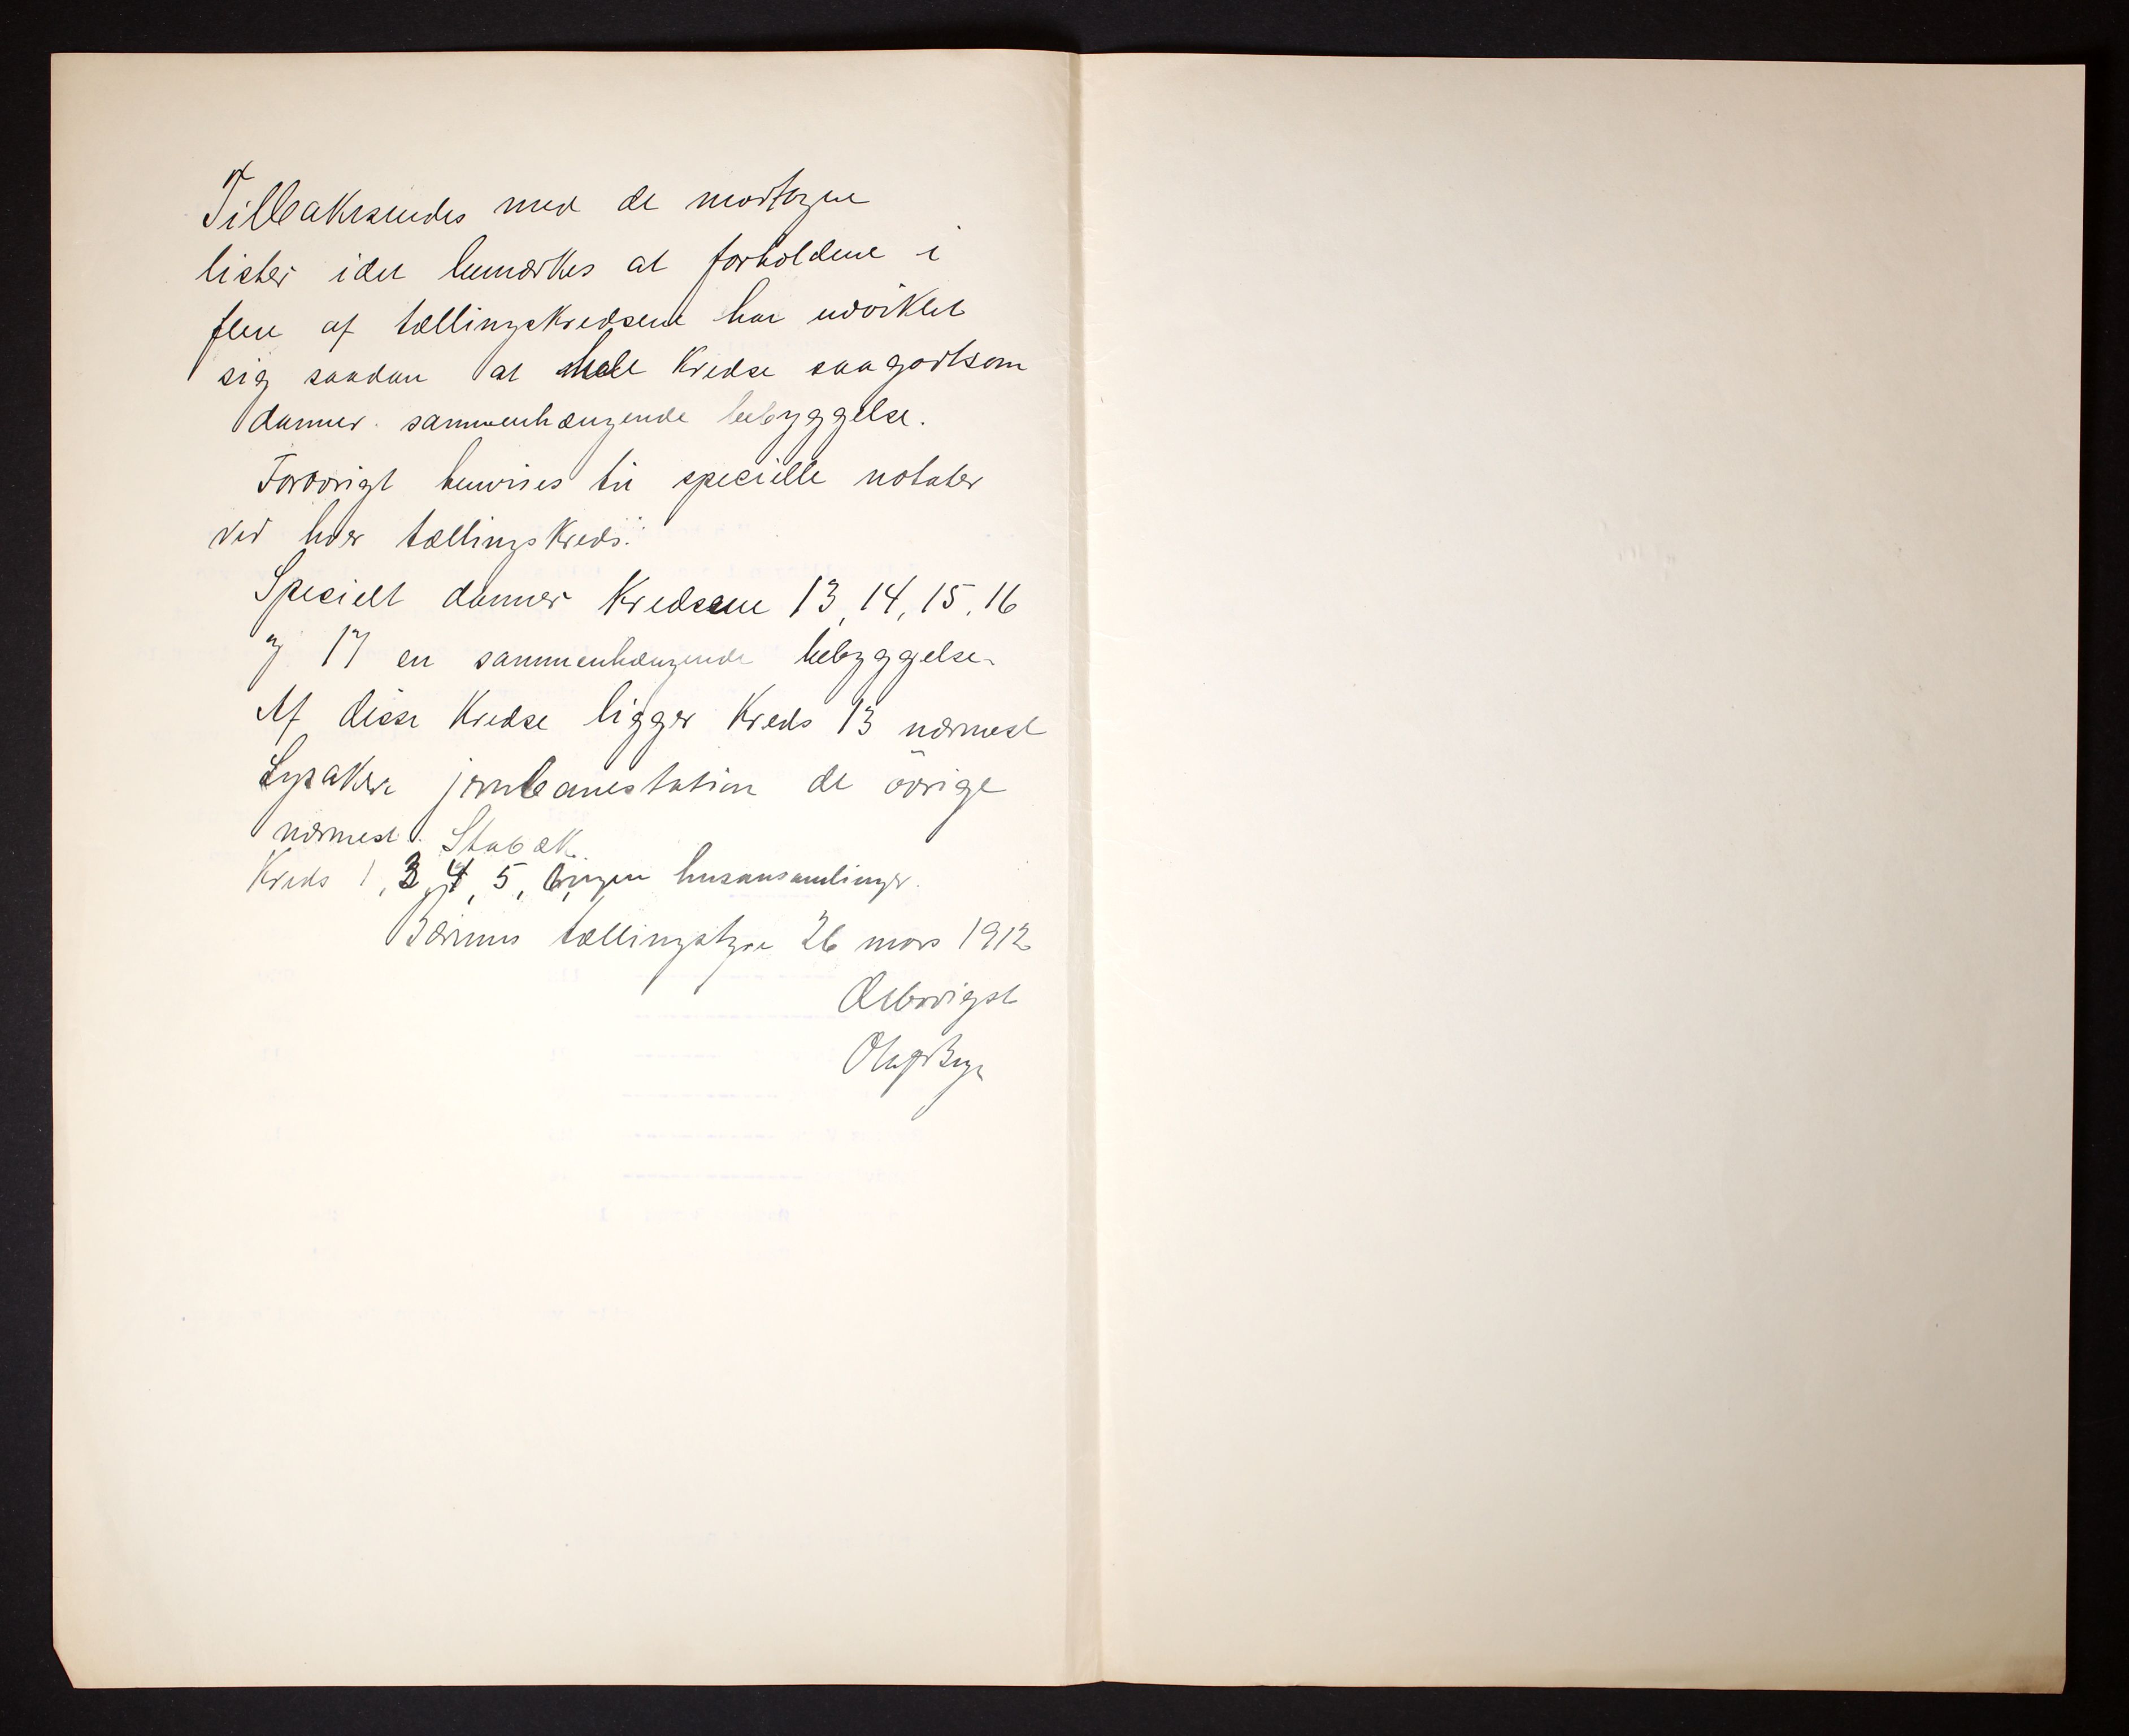 Tilbakesendes med de modtagne
lister idet bemærkes at forholdene i
flere af tællingskredsene har udviklet
sig saadan at hele Kredse saagodtsom
danner sammenhængende bebyggelse.
Forøvrigt henvises til specielle notater
ved hver tællingskreds.
Specielt danner Kredsene 13, 14, 15, 16
og 17 en sammenhængende bebyggelse.
Af disse Kredse ligger Kreds 13 nærmest
Lysaker jernbanestation de øvrige
nærmest Stabæk.
Kreds 1, 3, 4, 5, 6, ingen husansamlinger.
Bærums tællingstyre 26 mars 1912
Ærbødigst
Olaf